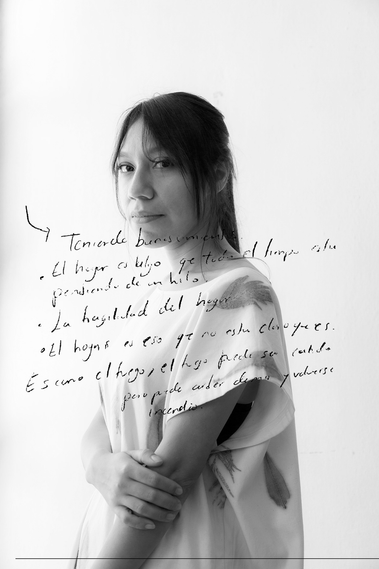 Teniendo buenos
• El hogar es algo que todo el tiempo esta
pendiendo de un hilo.
• La fragilidad del hogar
• El hogar es eso que no esta claro que es.
Es como el fuego, el fuego puede ser
pero puede arder demás y volverse
incendio.